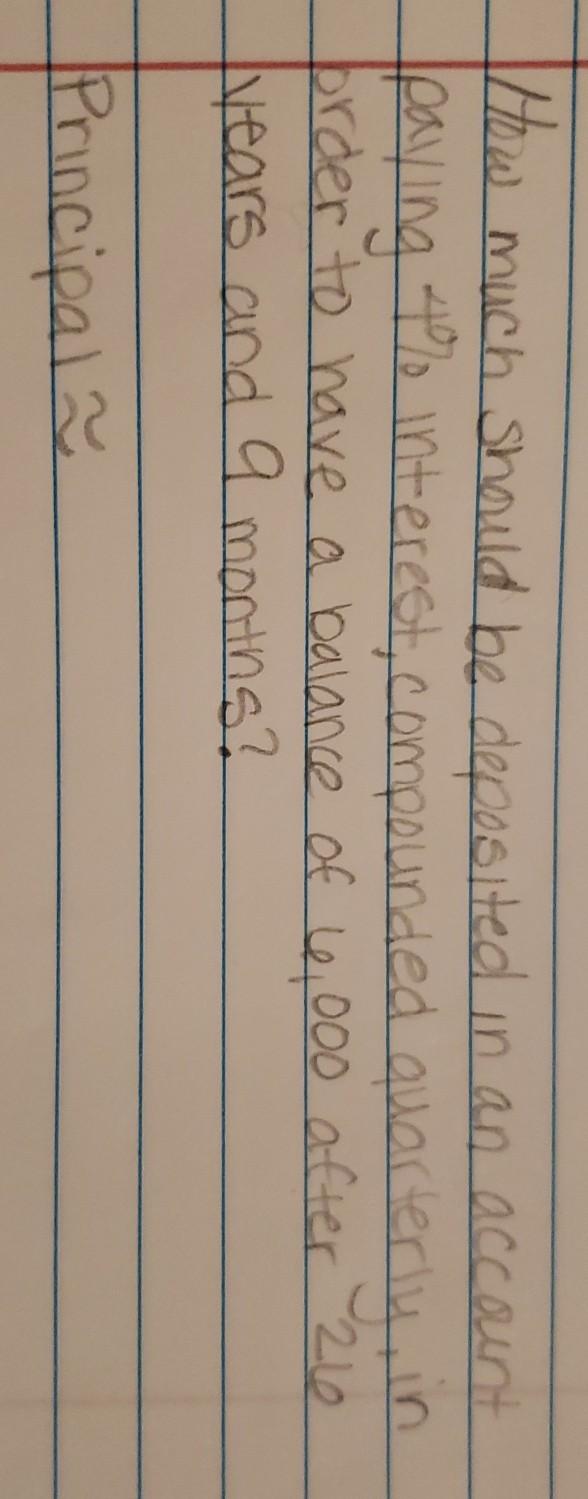 How much should be deposited in an account
paying 4% interest, compounded quarterly, in
order to have a balance of 6,000 after 26
years and 9 months?
Principal ≈